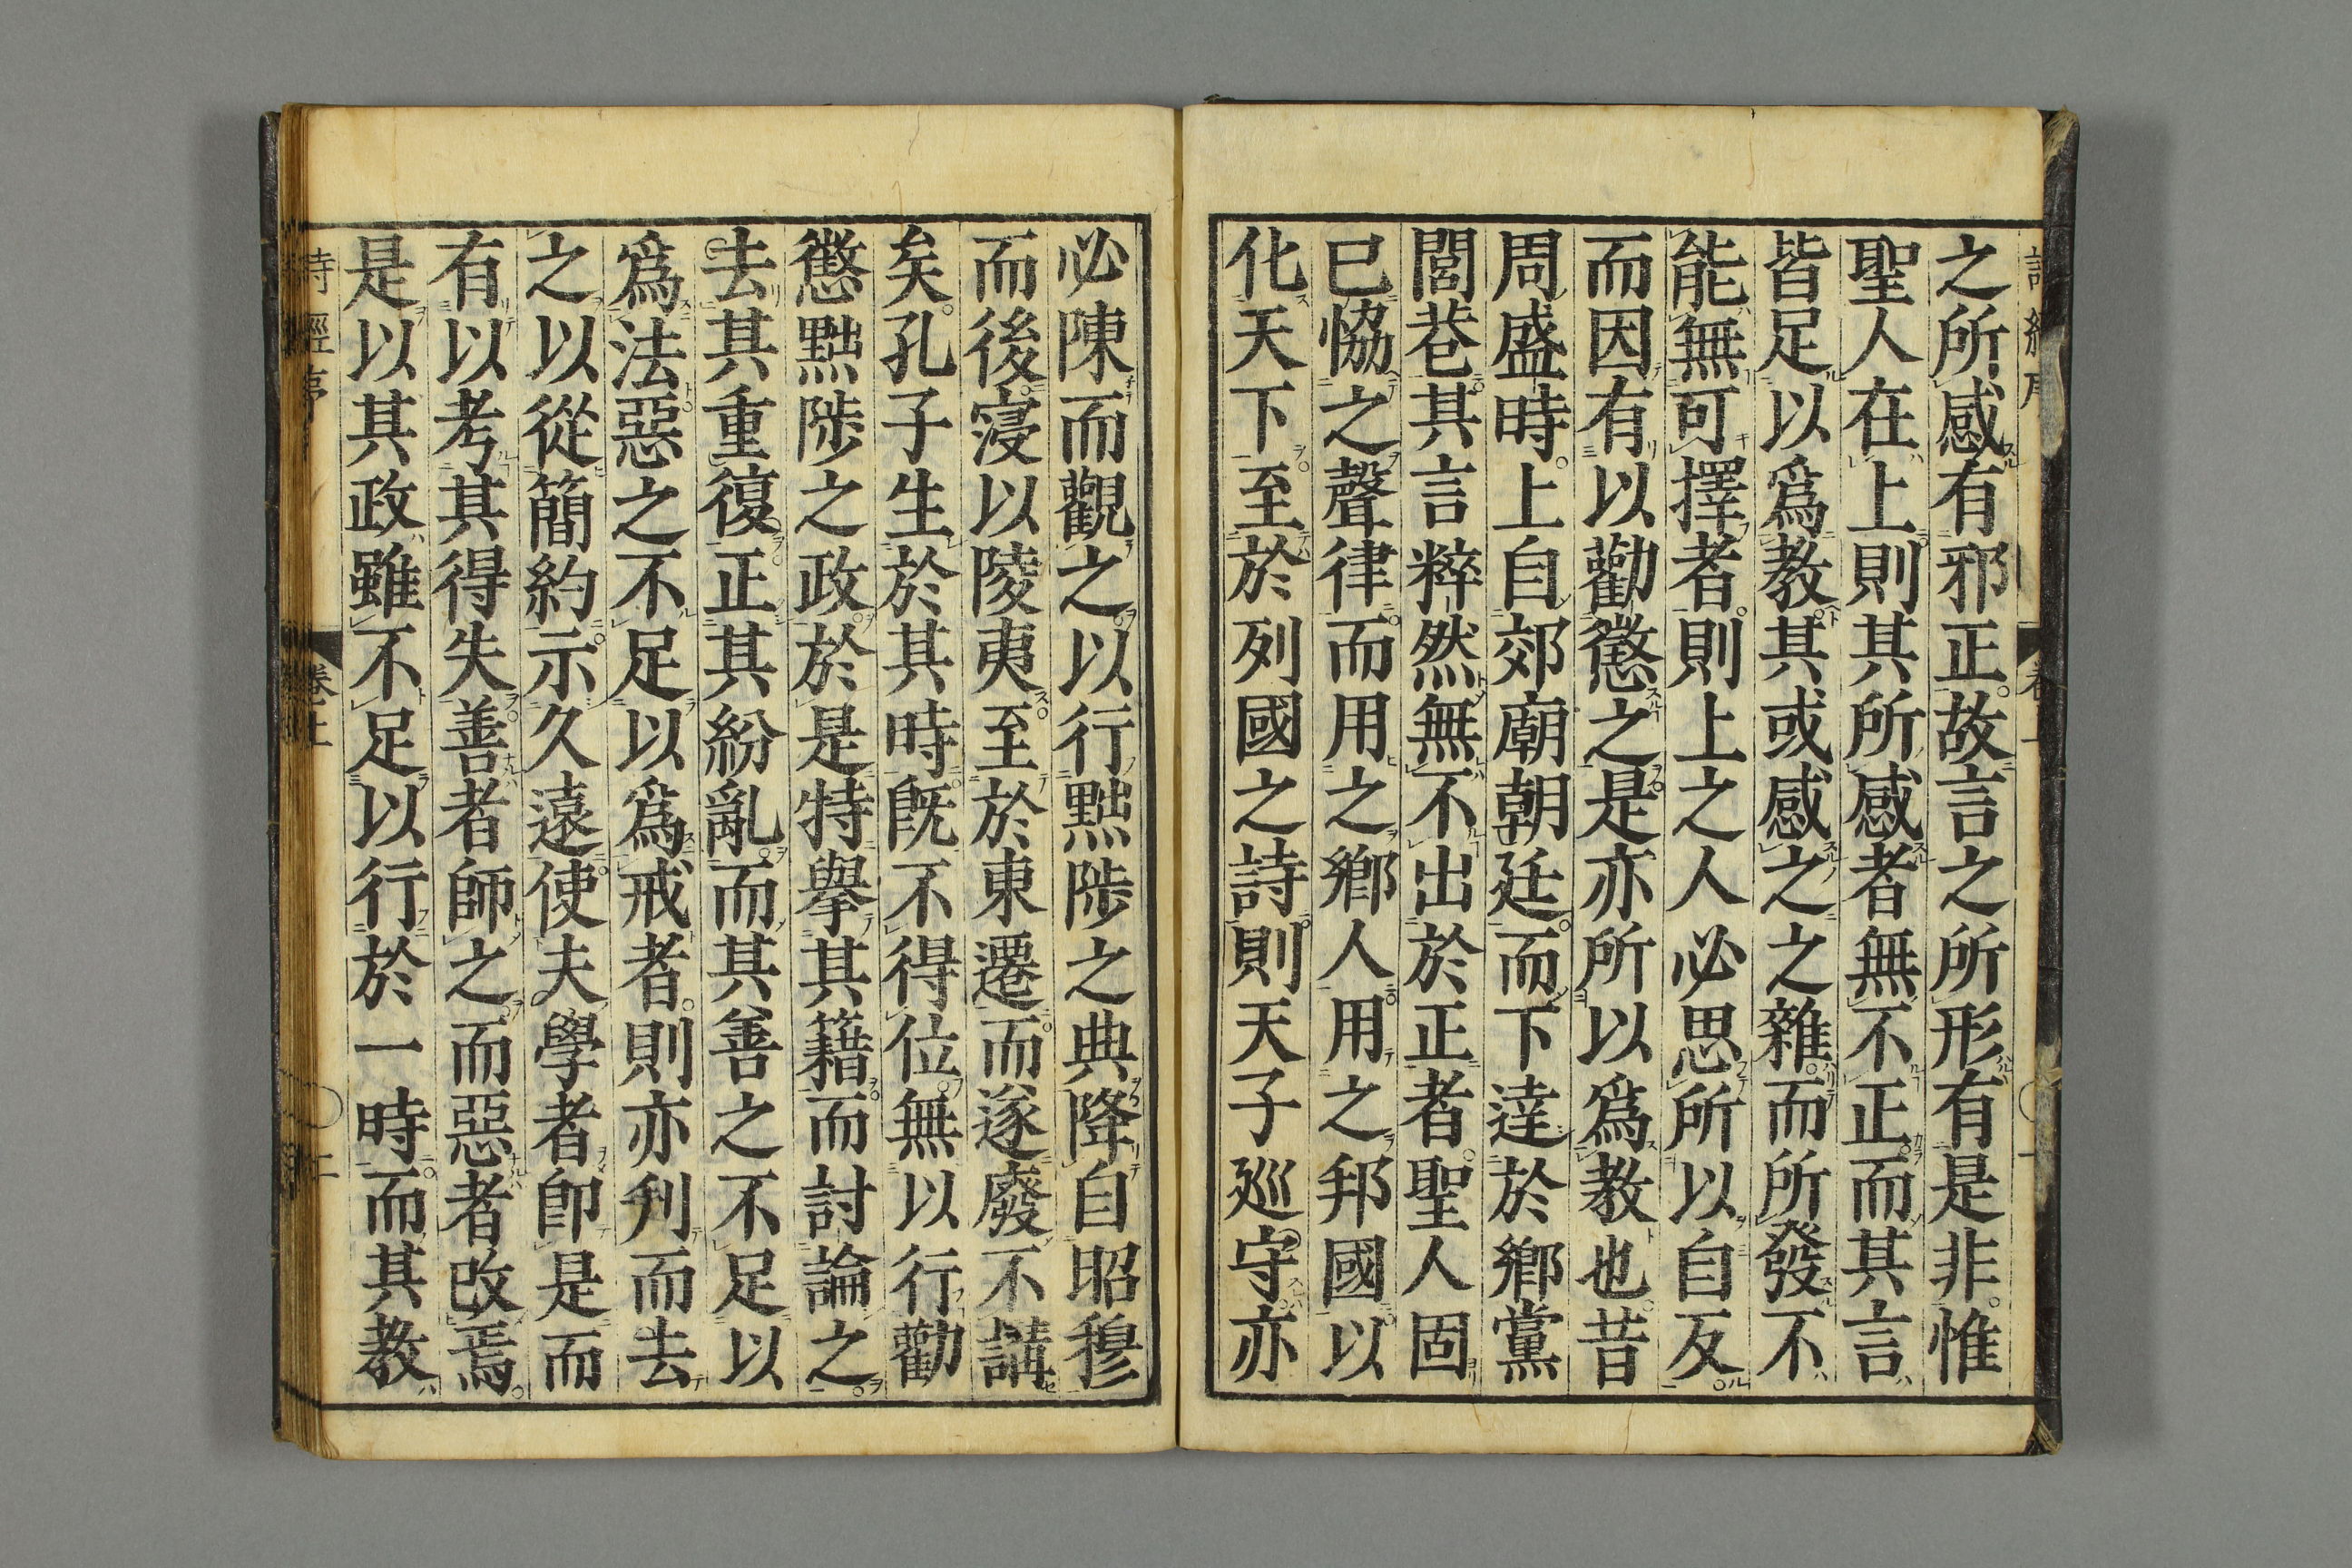 之所感有邪正故言之所形有是非惟
聖人在上則其所感者無不正而其言
皆足以爲教其或感之之雜而所發不
能無可擇者則上之人必思所以自反
而因有以勸懲之是亦所以爲教也昔
周盛時上自郊廟朝廷而下達於鄉黨
閭巷其言粹然無不出於正者聖人固
已恊之聲律而用之鄉人用之邦國以
化天下至於列國之詩則天子巡守亦
必陳而觀之以行黜陟之典降自昭穆
而後寖以陵夷至於東遷而遂廢不講
矣孔子生於其時旣不得位無以行勸
懲黜陟之政於是特擧其籍而討論之
去其重復正其紛亂而其善之不足以
爲法惡之不足以爲戒者則亦刋而去
之以從簡約示久遠使夫學者卽是而
有以考其得失善者師之而惡者改焉
是以其政雖不足以行於一時而其教
詩經序 卷上 二